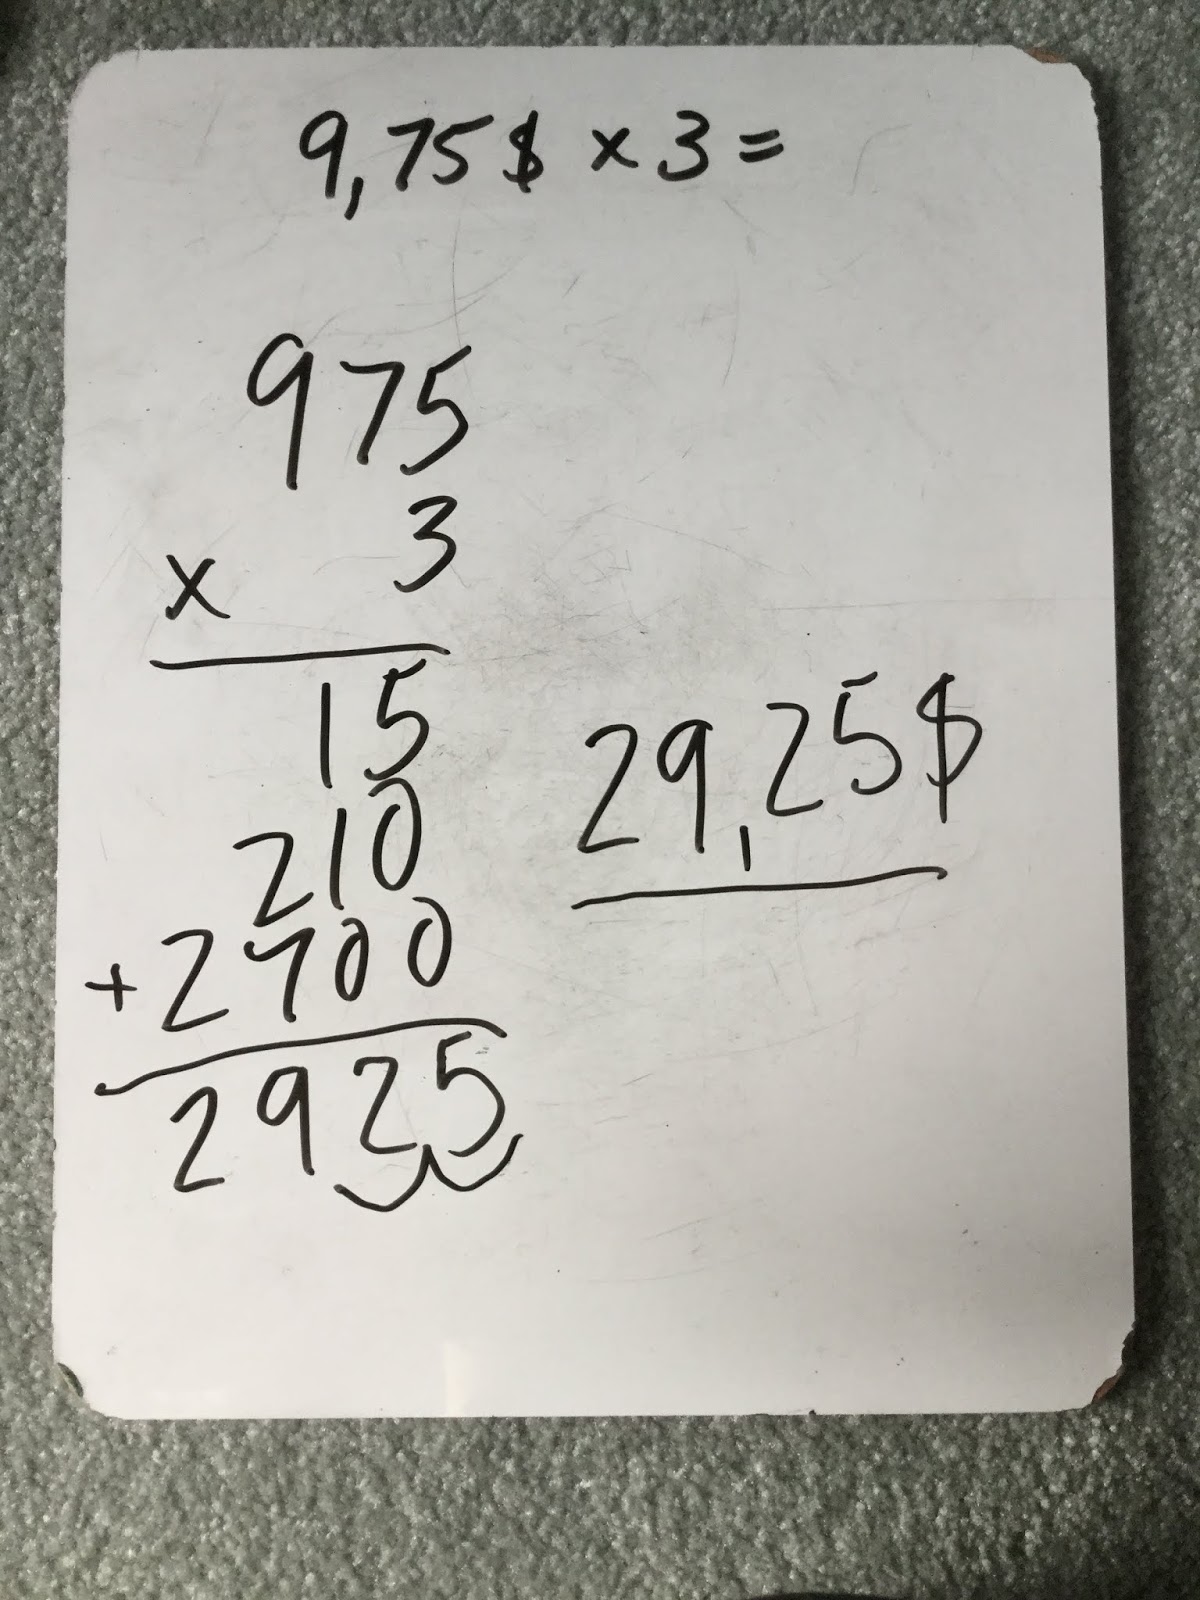 9,75$ x 3 =
975
x 3
15
210
+ 2700
2925
29,25$